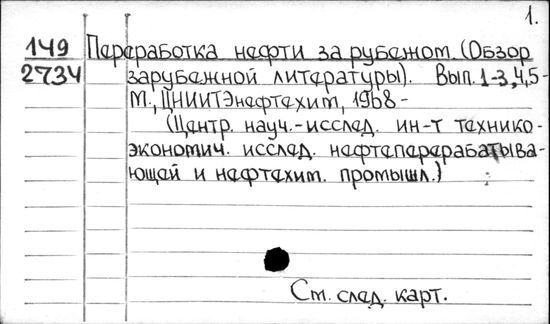 1.
149 Переработка нефти за рубежом. (Обзор
2734 зарубежной литературы). Вып. 1-3,4,5-
М., ЦНИИТЭнефтехим, 1968-
(Центр. науч.-исслед. ин-т технико-
экономич. исслед. нефтеперерабатыва-
ющей и нефтехим. промышл.)
См. след. карт.